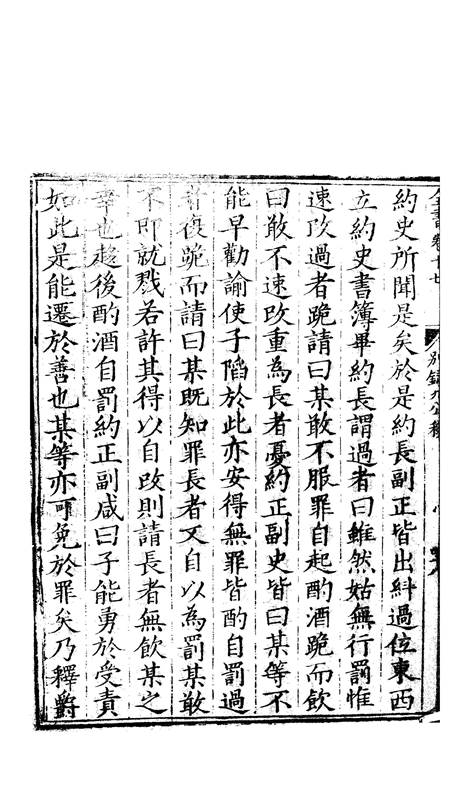 全書卷十七
別錄九公移
約史所聞是矣於是約長副正皆出糾過位東西
立約史書簿畢約長謂過者曰雖然姑無行罰惟
速改過者跪請曰某敢不服罪自起酌酒跪而飲
曰敢不速改重為長者憂約正副史皆曰某等不
能早勸諭使子陷於此亦安得無罪皆酌自罰過
者復跪而請曰某既知罪長者又自以為罰某敢
不即就戮若許其得以自改則請長者無飲某之
幸也趨後酌酒自罰約正副咸曰子能勇於受責
如此是能遷於善也某等亦可免於罪矣乃釋爵